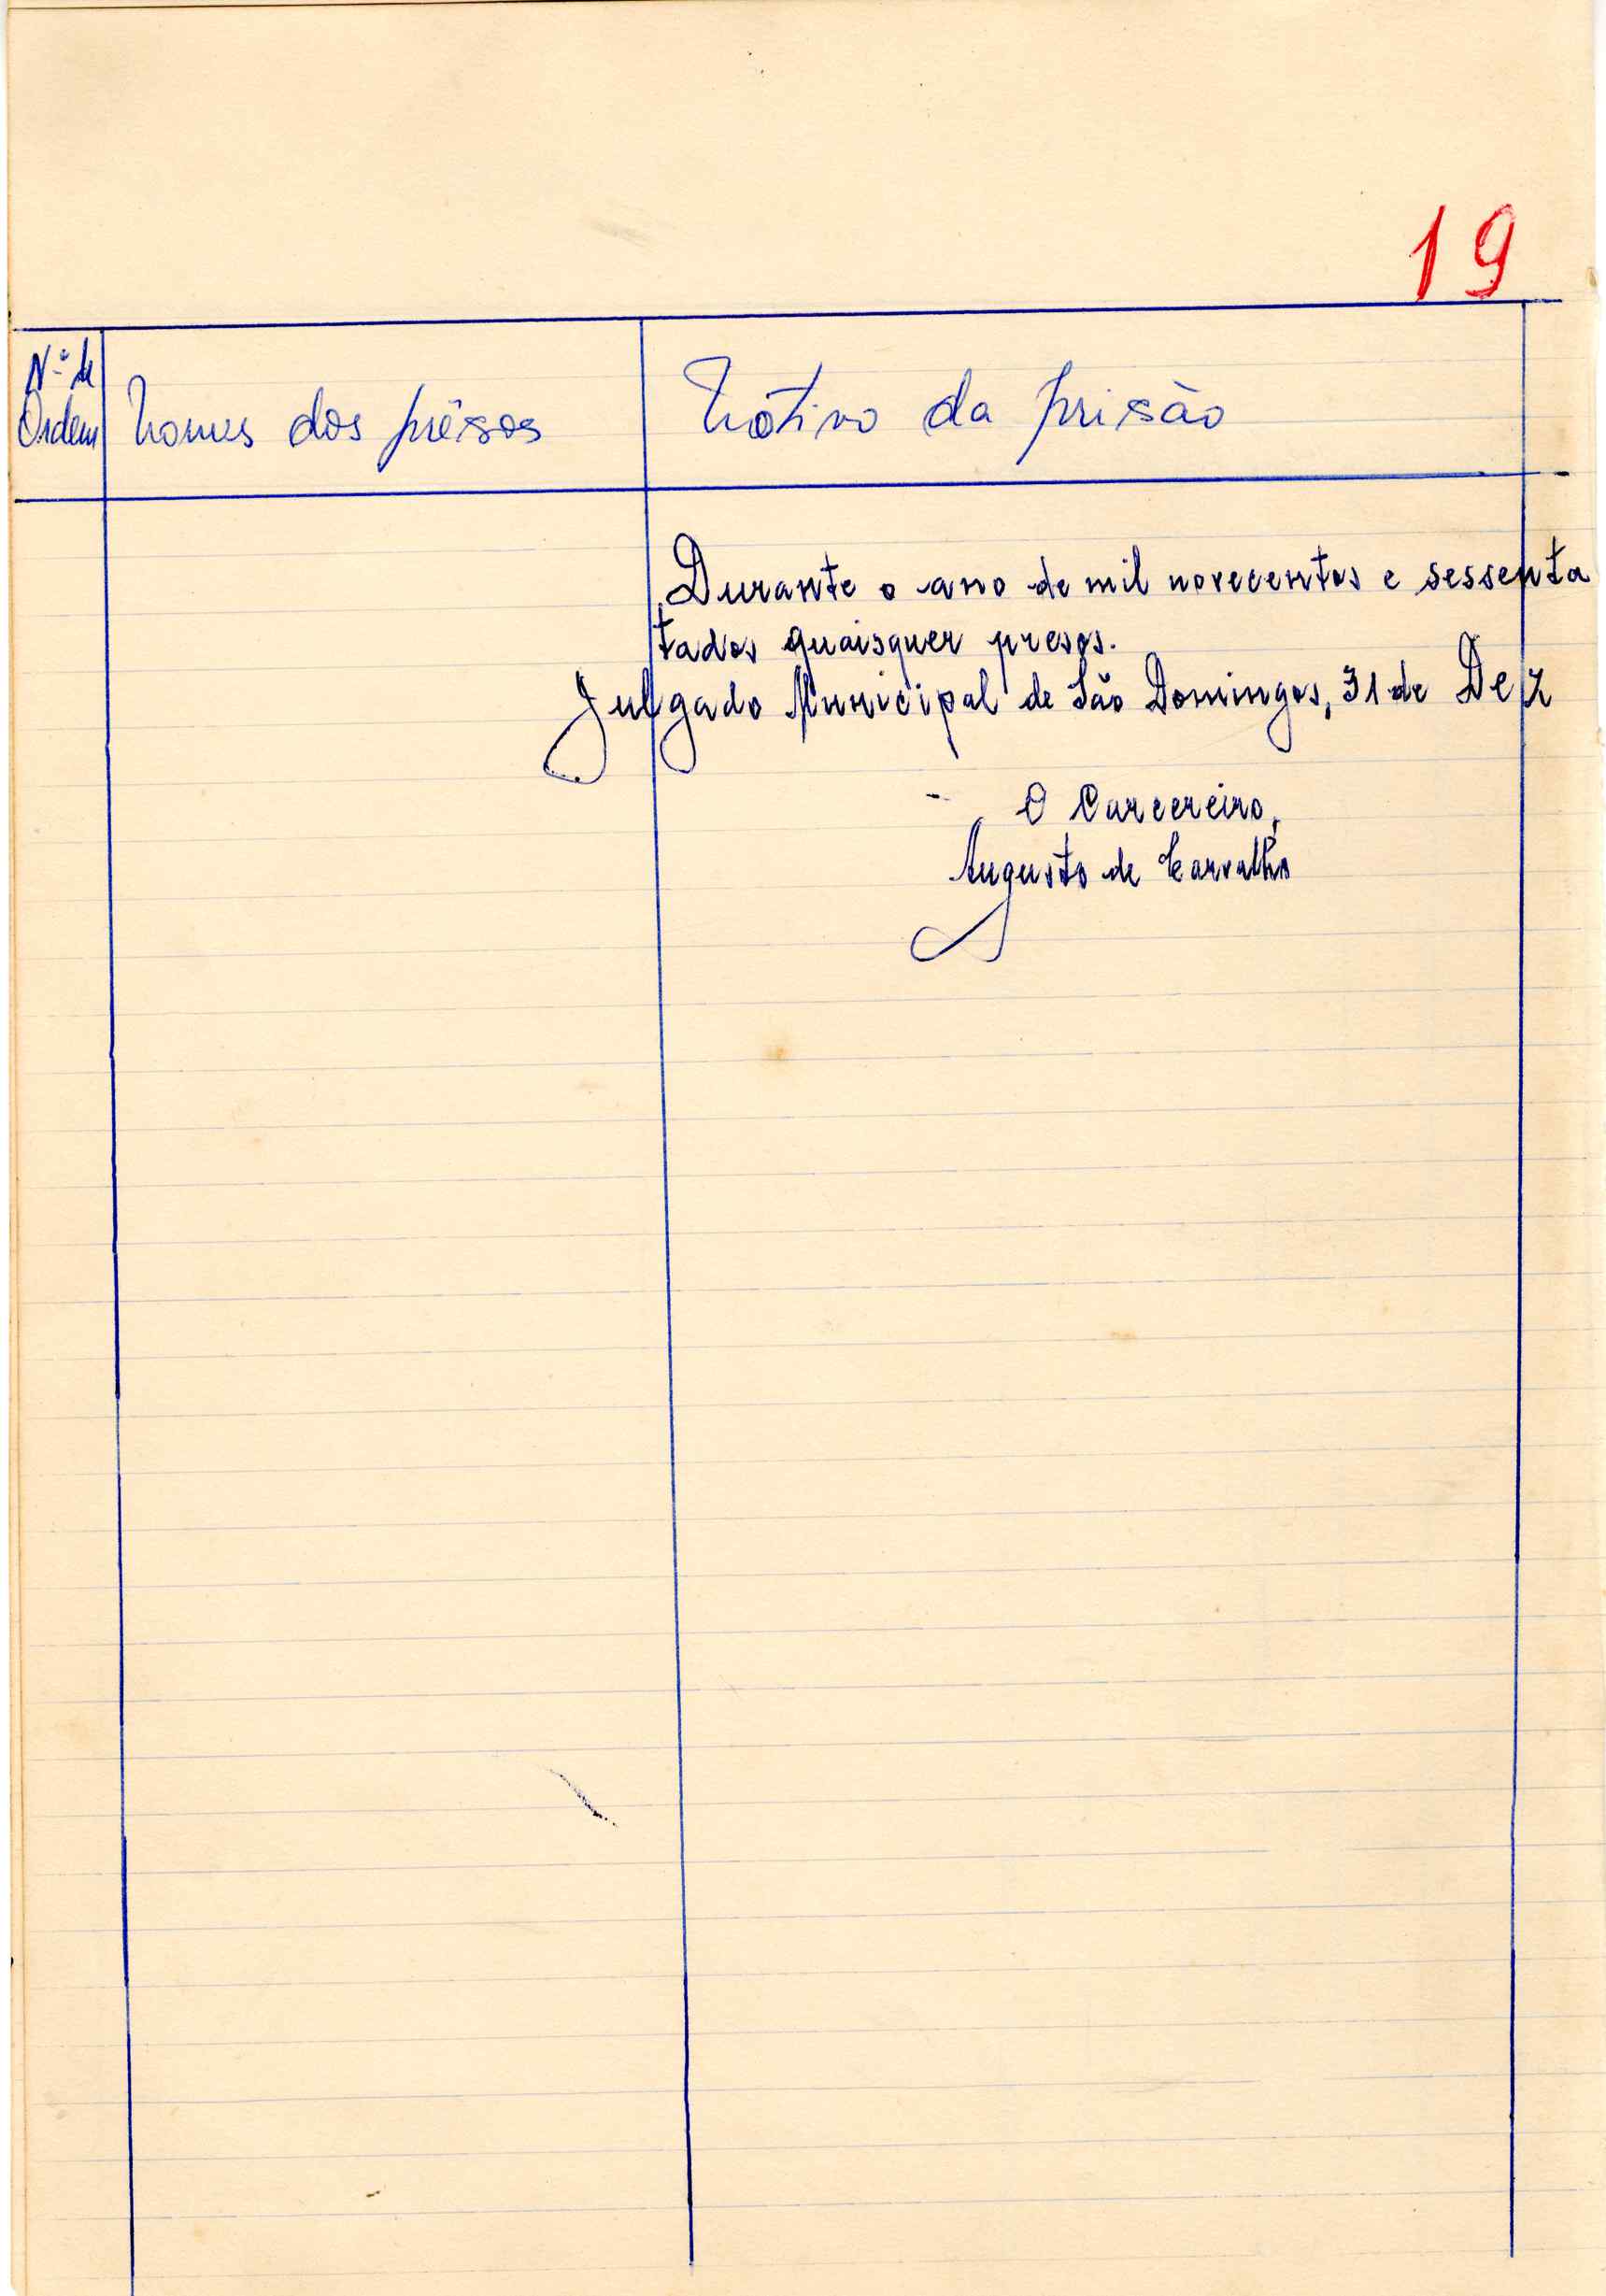 19
Nº de
Ordem
Nomes dos prêsos
Mótivo da prisão
Durante o ano de mil novecentos e sessenta
tados quaisquer presos.
Julgado Municipal de São Domingos, 31 de Dez
O Carcereiro,
Augusto de Carvalho